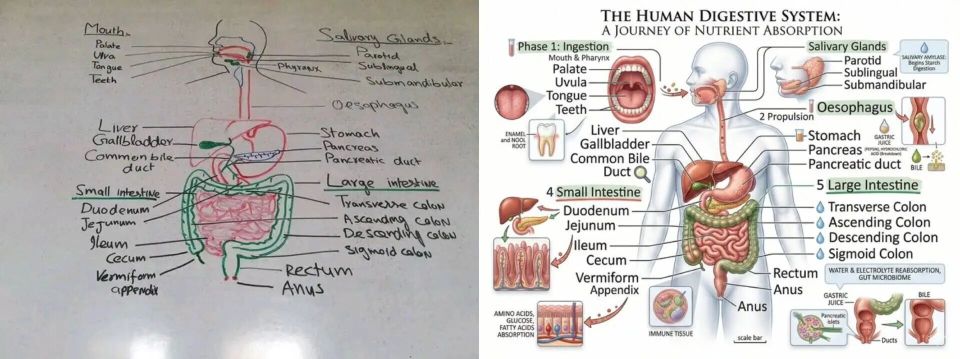 Mouth:-
Palate
Ulva
Tongue
Teeth
Salivary Glands:-
Parotid
Sublingual
Submandibular
Phyranx
Oesophagus
Liver
Gallbladder
Common bile
duct
Stomach
Pancreas
Pancreatic duct
Small intestine
Duodenum
Jejunum
Ileum
Cecum
Vermiform
appendix
Large intestine
Transverse colon
Ascending colon
Descending colon
Sigmoid colon
Rectum
Anus
THE HUMAN DIGESTIVE SYSTEM:
A JOURNEY OF NUTRIENT ABSORPTION
Phase 1: Ingestion
Mouth & Pharynx
Palate
Uvula
Tongue
Teeth
ENAMEL
and NOOL
ROOT
Salivary Glands
Parotid
Sublingual
Submandibular
SALIVARY AMYLASE:
Begins Starch
Digestion
Oesophagus
2 Propulsion
GASTRIC
JUICE
(PEPSIN, HYDROCHLORIC
ACID (Breakdown)
BILE
Liver
Gallbladder
Common Bile
Duct
Stomach
Pancreas
Pancreatic duct
4 Small Intestine
Duodenum
Jejunum
Ileum
Cecum
Vermiform
Appendix
5 Large Intestine
Transverse Colon
Ascending Colon
Descending Colon
Sigmoid Colon
Rectum
Anus
Anus
WATER & ELECTROLYTE REABSORPTION,
GUT MICROBIOME
GASTRIC
JUICE
BILE
Pancreatic
islets
Ducts
AMINO ACIDS,
GLUCOSE,
FATTY ACIDS
ABSORPTION
IMMUNE TISSUE
scale bar